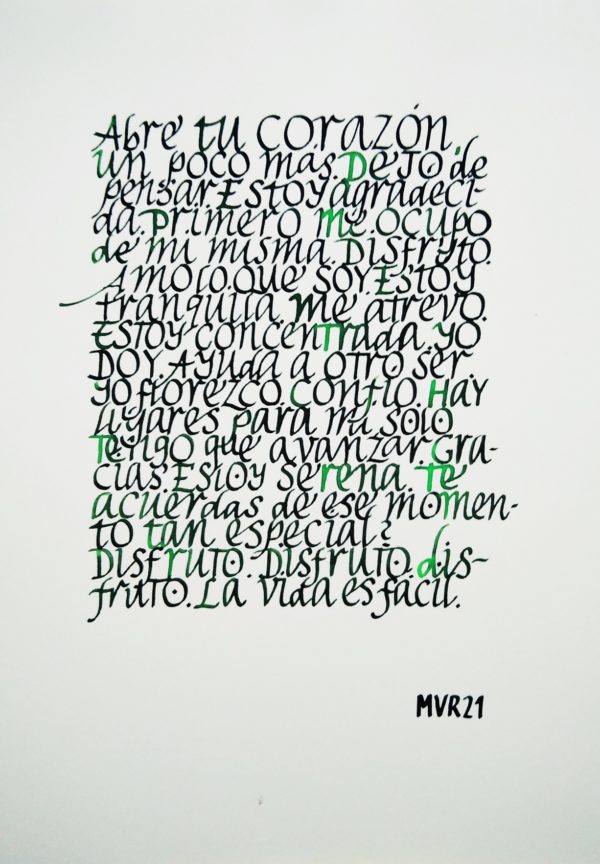 Abre tu corazón.
Un poco más. Dejo de
pensar. Estoy agradeci-
da. Primero me ocupo
de mi misma. Disfruto.
Amo lo que soy. Estoy
tranquila. Me atrevo.
Estoy concentrada. Yo
doy. Ayuda a otro ser.
Yo florezco. Confío. Hay
lugares para mi solo
Tengo que avanzar. Gra-
cias. Estoy serena. Te
acuerdas de ese momen-
to tan especial?
Disfruto. Disfruto. dis-
fruto. La vida es fácil.
MVR21